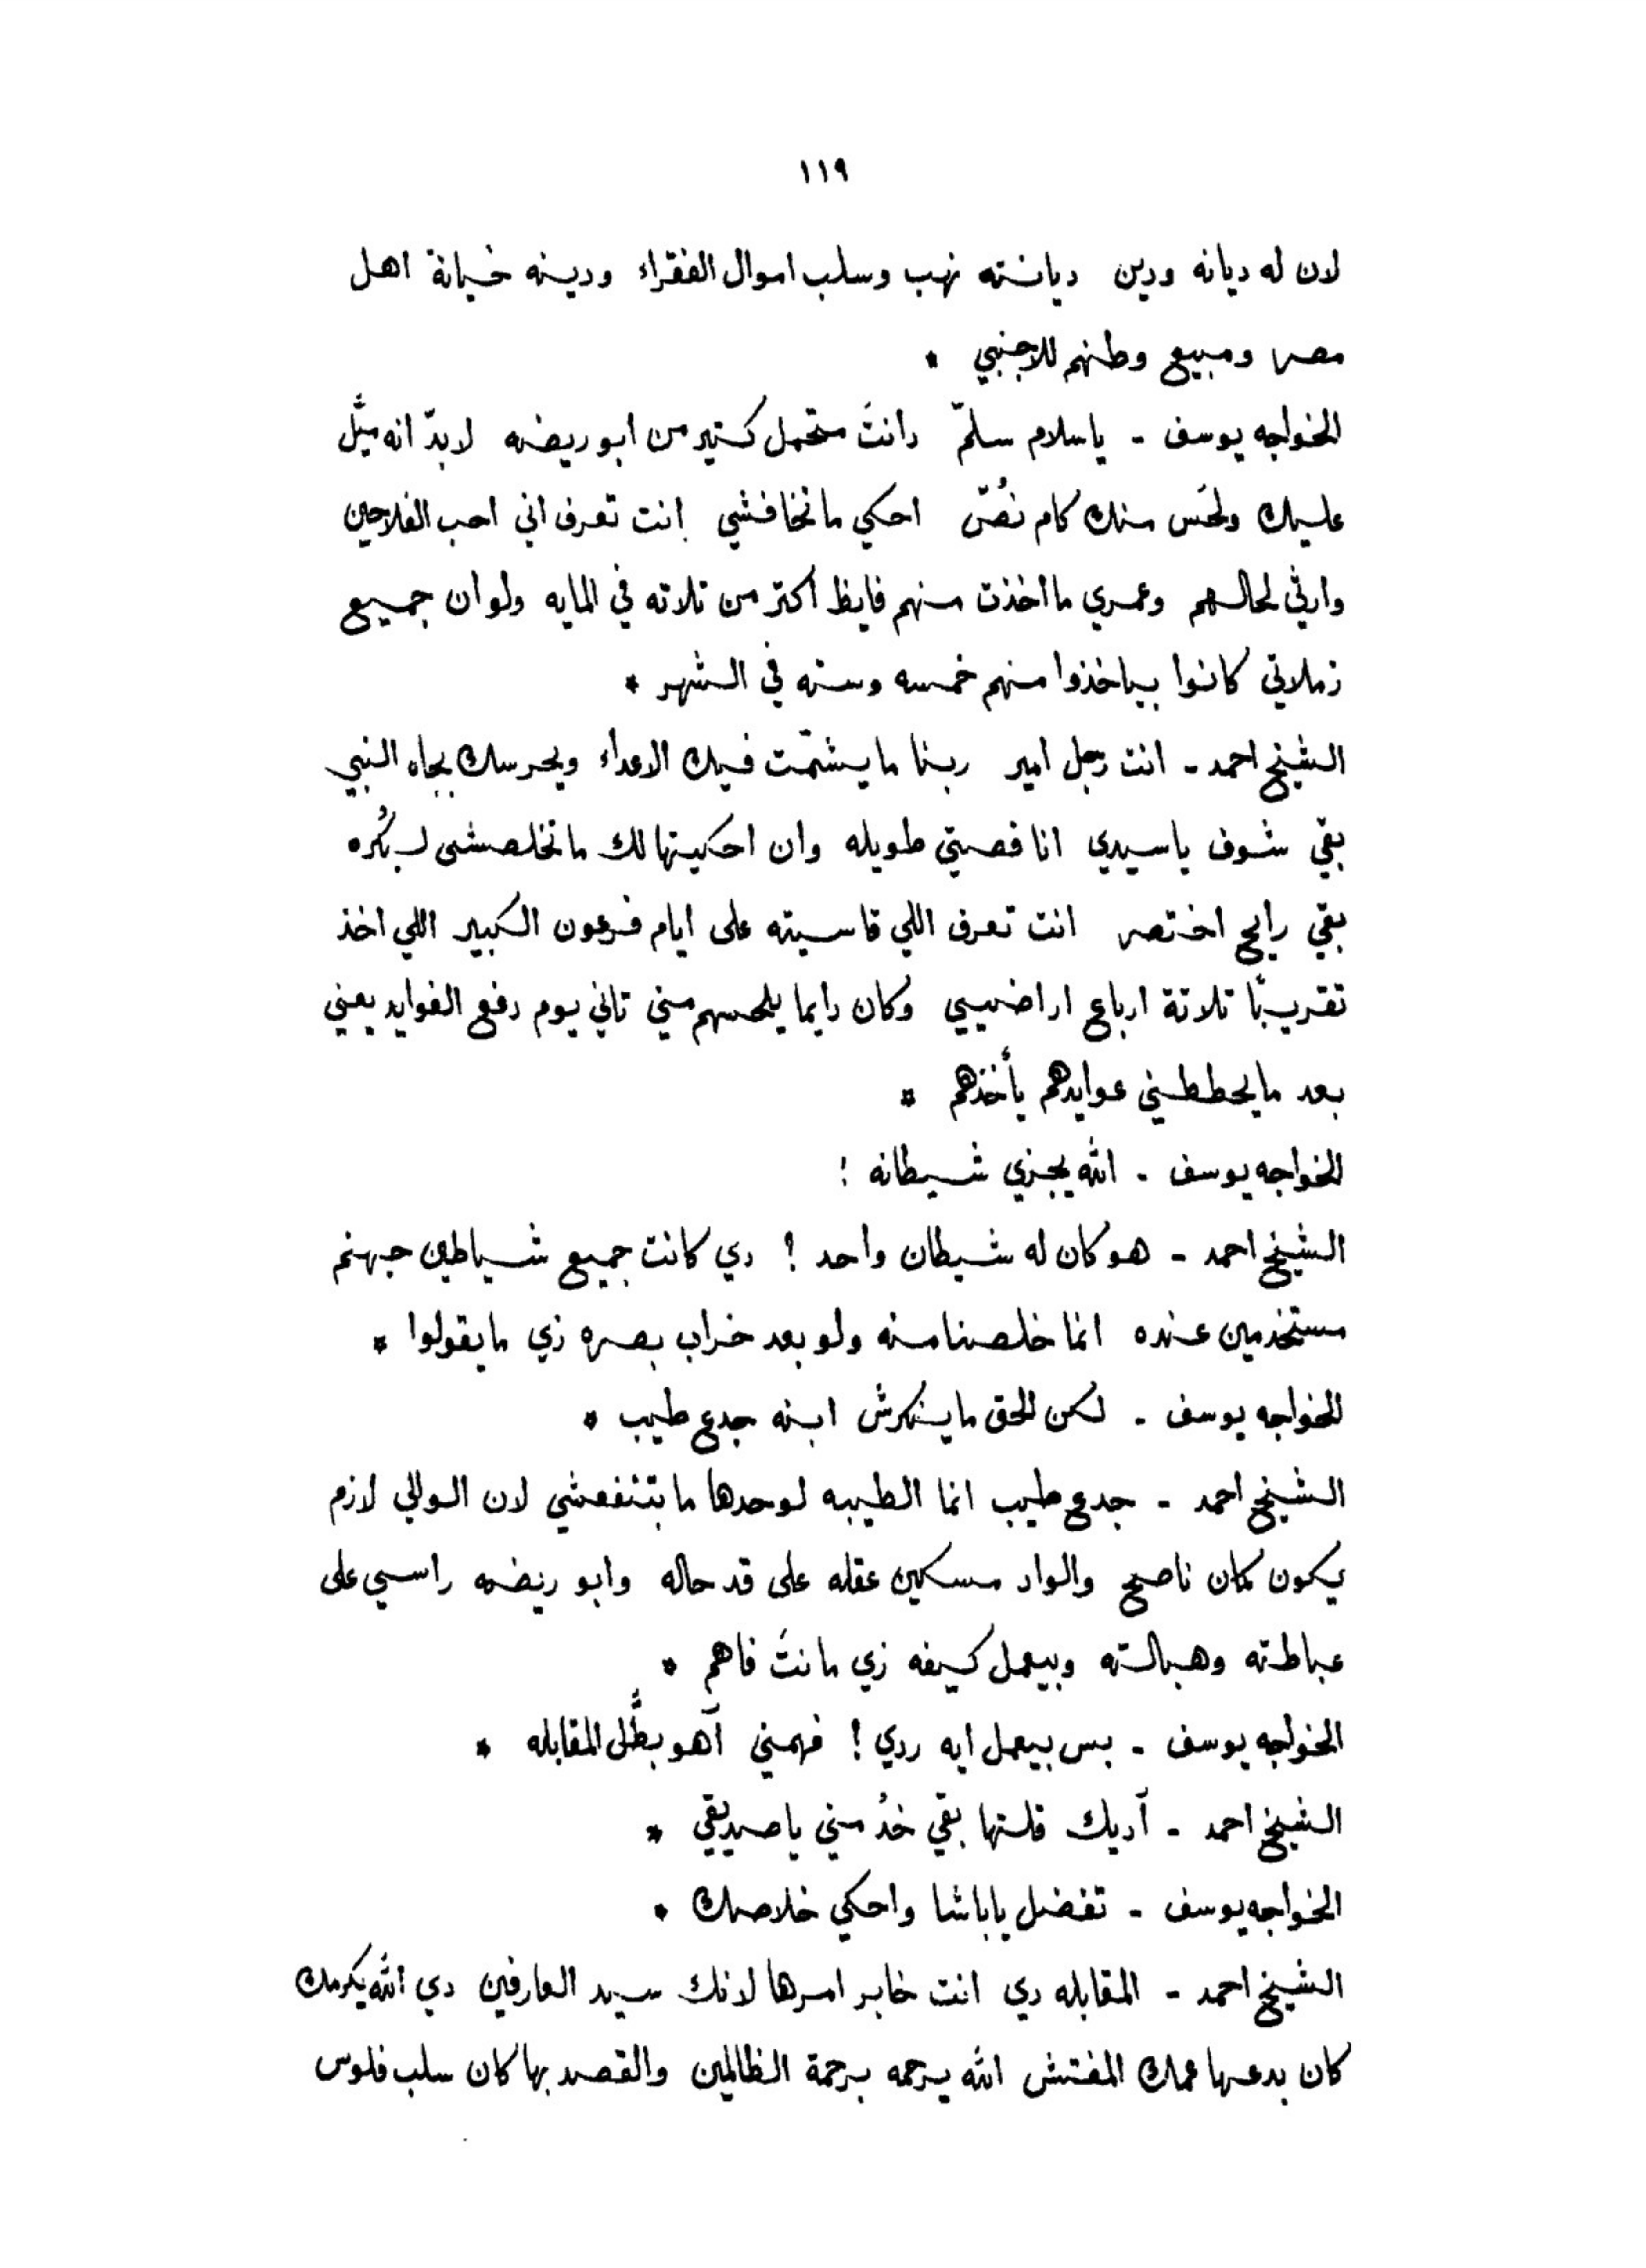 ١١٩
لان له ديانه ودين ديانته نهب وسلب اموال الفقراء ودينه خيانة اهل
مصر ومبيع وطنهم للاجنبي *
الخواجه يوسف - ياسلام سلّم دانتَ متحمل كتير من ابو ريضه لابدّ انه ميِّل
عليك ولحَس منك كام نُصّ احكي ماتخافشي انت تعرف اني احب الفلاحين
وارثي لحالهم وعمري مااخذت منهم فايظ اكتر من تلاته في المايه ولو ان جميع
زملاتي كانوا بياخذوا منهم خمسه وسته في الشهر *
الشيخ احمد - انت رجل امير ربنا مايشمّت فيك الاعداء ويحرسك بجاه النبي
بقي شوف ياسيدي انا قصتي طويله وان احكيتها لك ماتخلصشي لبُكره
بقي رايح اختصر انت تعرف اللي قاسيته على ايام فرعون الكبير اللي اخذ
تقريبًا تلاتة ارباع اراضيي وكان دايما يلحسهم مني تاني يوم دفع الفوايد يعني
بعد مايحططني عوايدهم يأخذهم *
الخواجه يوسف - الله يجزي شيطانه !
الشيخ احمد - هو كان له شيطان واحد ! دي كانت جميع شياطين جهنم
مستخدمين عنده انما خلصنا منه ولو بعد خراب بصره زي مايقولوا *
الخواجه يوسف - لكن الحق ماينكرش ابنه جدع طيب *
الشيخ احمد - جدع طيب انما الطيبه لوحدها مابتنفعشي لان الوالي لازم
يكون كمان ناصح والواد مسكين عقله على قد حاله وابو ريضه راسي على
عباطته وهبالته وبيعمل كيفه زي مانتَ فاهم *
الخواجه يوسف - بس بيعمل ايه ردي ! فهمني آهو بطَّل المقابله *
الشيخ احمد - آديك قلتها بقي خدْ مني ياصديقي *
الخواجه يوسف - تفضل ياباشا واحكي خلاصك *
الشيخ احمد - المقابله دي انت خابر امرها لانك سيد العارفين دي الله يكرمك
كان بدعها عمك المفتش الله يرحمه برحمة الظالمين والقصد بها كان سلب فلوس